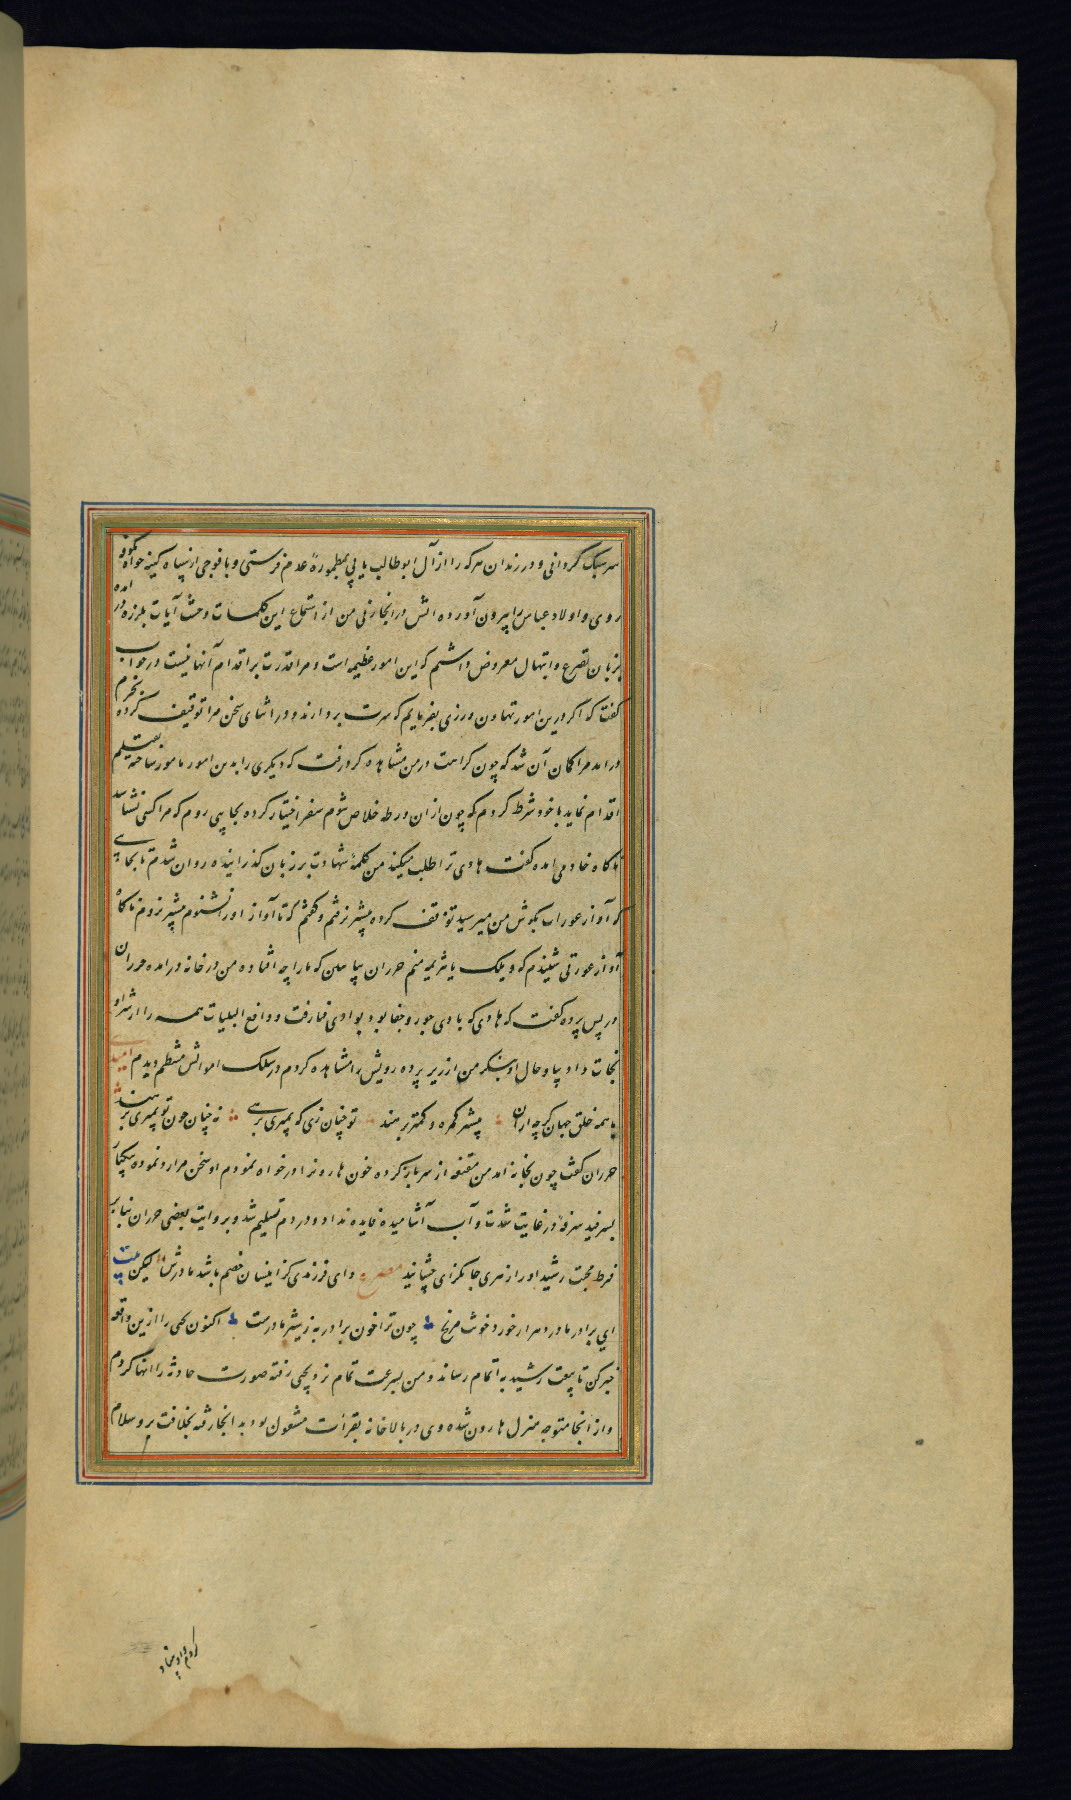 سر سبک گردانی و در زندان هرکه را از آل ابوطالب یابی بمطمورهٔ عدم فرستی و با فوجی از سپاه کینه خواه بکوفه
روی و اولاد عباس را بیرون آورده آتش در آنجا زنی من از استماع این کلمات وحشت آیات بلرزه در آمده
بزبان تضرع و ابتهال معروض داشتم که این امور عظیمه است و مرا قدرت بر اقدام آنها نیست در جواب
گفت که اگر درین امور تهاون ورزی بفرمایم که سرت بردارند و در اثنای سخن مرا توقیف کرده بحرم
درآمد مرا گمان آن شد که چون کراهت در من مشاهده کرد رفت که دیگری را بدین امور مامور ساخته بقتلم
اقدام نماید با خود شرط کردم که چون ازان ورطه خلاص شوم سفر اختیار کرده بجایی روم که مرا کسی نشناسد
ناگاه خادمی آمده گفت هادی ترا طلب میکند من کلمهٔ شهادت بر زبان گذرانیده روان شدم تا بجایی
که آواز عورات بگوش من میرسید توقف کرده پیشتر نرفتم و گفتم که تا آواز او را نشنوم پیشتر نروم ناگاه
آواز عورتی شنیدم که ویلک یا هرثمه منم خیزران بیا ببین که ما را چه افتاده من در خانه در آمدم خیزران
در پس پرده گفت که هادی که بادی جور و جفا بود بوادی فنا رفت و واقع البلیات همه را از شر او
نجات داد بیا و حال او بنگر من از زیر پرده رویش را مشاهده کردم در سلک امواتش منتظم دیدم
با همه خلق جهان گرچه ازان پیشتر گمره و کمتر برهند تو چنان زی که بمیری برهی نه چنان چون تو بمیری برهند
خیزران گفت چون بخانه آمد من مقنعه از سر باز کرده خون هارون از او خواه نمودم او سخن مرا رد نموده یکبار
بسرفید سرفهٔ در غایت شدت و آب آشامیده فایده نداد و در دم تسلیم شد و بروایت بعضی خیزران بنابر
فرط محبت رشید او را زهری جانگزای چشانید مصرع وای فرزندی کز اینسان خصم باشد مادرش لیکن بیت
ای برادر مادر دهر ار خورد خونت مرنج چون ترا خون برادر به ز شیر مادرست اکنون یحیی را ازین واقعه
خبر کن تا بیعت رشید به اتمام رساند و من بسرعت تمام نزد یحیی رفته صورت حادثه را انها کردم
و از آنجا متوجه منزل هارون شده وی در بالاخانه بقرائت مشغول بود بد انجا رفته بخلافت بر و سلام
کردم و او بنیاد